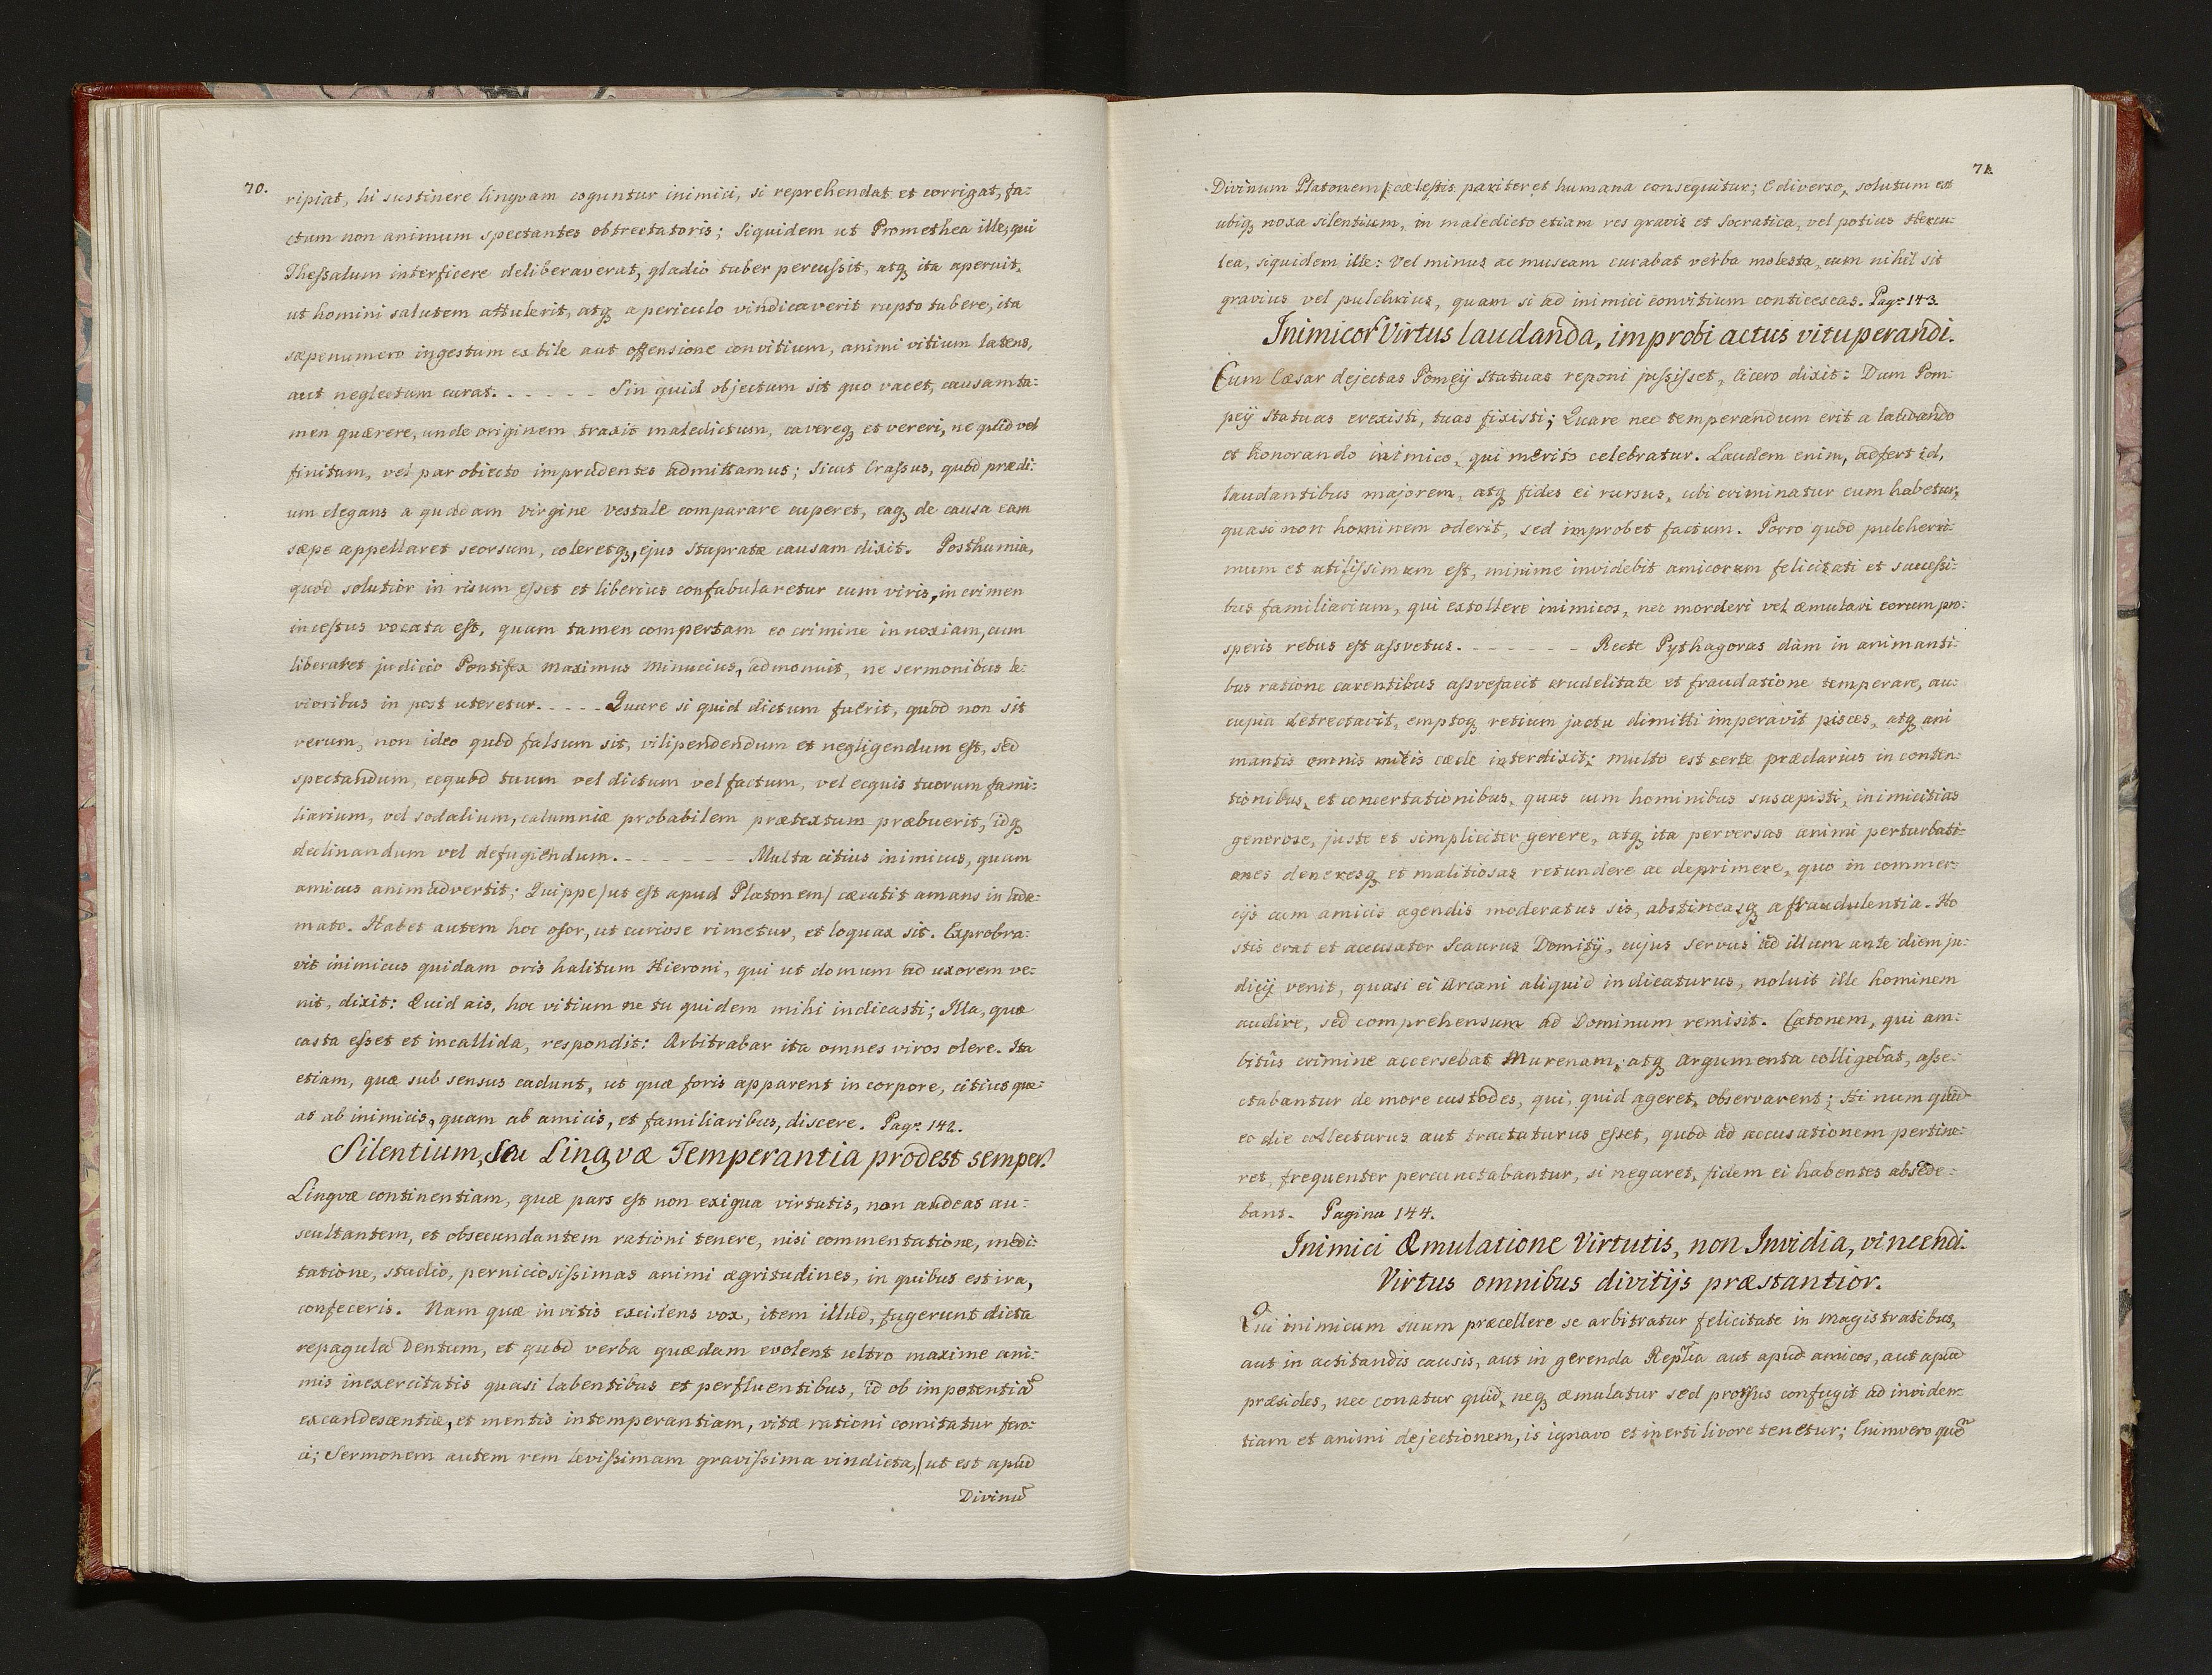 70.
ripiat, hi sustinere lingvam coguntur inimici, si reprehendat et corrigat, fa:
ctum non animum spectantes obtrectatoris; Siquidem ut Promethea ille, qui
Thessalum interficere deliberaverat, gladio tuber percussit, atq ita aperuit,
ut homini salutem attulerit, atq a periculo vindicaverit rupto tubere, ita
sæpenumero ingestum ex bile aut offensione convitium, animi vitium latens,
aut neglectum curat. - - - - - Sin quid objectum sit quo vacet, causam ta:
men quærere, unde originem traxit maledictum, cavereq et vereri, ne quid vel
finitum, vel par obiecto imprudentes admittamus; Sicut Crassus, quod prædi:
um elegans a quadam virgine vestale comparare cuperet, eaq de causa eam
sæpe appellaret seorsum, coleretq, ejus stupratæ causam dixit. Posthumia,
quod solutior in risum esset et liberius confabularetur cum viris, in crimen
incestus vocata est, quam tamen compertam eo crimine innoxiam, cum
liberaret judicio Pontifex Maximus Minucius, admonuit, ne sermonibus le:
vioribus in post uteretur. - - - - Quare si quid dictum fuerit, quod non sit
verum, non ideo quod falsum sit, vilipendendum et negligendum est, sed
spectandum, ecquod tuum vel dictum vel factum, vel ecquis tuorum fami:
liarium, vel sodalium, calumniæ probabilem prætextum præbuerit, idq
declinandum vel defugiendum. - - - - - - - Multa citius inimicus, quam
amicus animadvertit; Quippe /ut est apud Platonem/ cæcutit amans in ada:
mato. Habet autem hoc osor, ut curiose rimetur, et loquax sit. Exprobra:
vit inimicus quidam oris halitum Hieroni, qui ut domum ad uxorem ve:
nit, dixit: Quid ais, hoc vitium ne tu quidem mihi indicasti; Illa, quæ
casta esset et incallida, respondit: Arbitrabar ita omnes viros olere. Ita
etiam, quæ sub sensus cadunt, ut quæ foris apparent in corpore, citius que:
as ab inimicis, quam ab amicis, et familiaribus, discere. Pag: 142.
Silentium, seu Lingvæ Temperantia prodest semper.
Lingvæ continentiam, quæ pars est non exigua virtutis, non audeas au:
scultantem, et obsecundantem rationi tenere, nisi commentatione, medi:
tatione, studio, perniciosissimas animi ægritudines, in quibus est ira,
confeceris. Nam quæ invitis excidens vox, item illud, fugerunt dicta
repagula Dentum, et quod verba quædam evolent ultro maxime ani:
mis inexercitatis quasi labentibus et perfluentibus, id ob impotentiã
excandescentiæ, et mentis intemperantiam, vitæ rationi comitatur fero:
ci; Sermonem autem rem levissimam gravissima vindicta, /ut est apud
Divinũ
71.
Divinum Platonem/ cælestis pariter et humana consequitur; E diverso, solutum est
ubiq noxa silentium, in maledicto etiam res gravis et Socratica, vel potius Hercu:
lea, siquidem ille: Vel minus ac muscam curabat verba molesta, cum nihil sit
gravius vel pulchrius, quam si ad inimici convitium conticescas. Pag: 143.
Inimicor Virtus laudanda, improbi actus vituperandi.
Cum Cæsar dejectas Pompeij Statuas reponi jussisset, Cicero dixit: Dum Pom:
peij Statuas erexisti, tuas fixisti; Quare nec temperandum erit a laudando
et honorando inimico, qui merito celebratur. Laudem enim, adfert id,
laudantibus majorem, atq fides ei rursus, ubi criminatur cum habetur,
quasi non hominem oderit, sed improbet factum. Porro quod pulcherri:
mum et utilissimum est, minime invidebit amicorum felicitati et successi:
bus familiarium, qui extollere inimicos, nec morderi vel æmulari eorum pro:
speris rebus est assvetus. - - - - - - - Recte Pythagoras dum in animanti:
bus ratione carentibus assvefacit crudelitate et fraudatione temperare, au:
cupia detrectavit, emptoq retium jactu dimitti imperavit pisces, atq ani
mantis omnis mitis cæde interdixit; multo est certe præclarius in conten:
tionibus, et concertationibus, quas cum hominibus suscepisti, inimicitias
generose, juste et simpliciter gerere, atq ita perversas animi perturbati:
ones deneresq et malitiosas retundere ac deprimere, quo in commer:
cijs cum amicis agendis moderatus sis, abstineasq a fraudulentia. Ho
stis erat et accusater Scaurus Domitij, cujus servus ad illum ante diem ju:
dicij venit, quasi ei Arcani aliquid indicaturus, noluit ille hominem
audire, sed comprehensum ad Dominum remisit. Catonem, qui am:
bitûs crimine accersebat Murenam, atq argumenta colligebat, asse:
ctabantur de more custodes, qui, quid ageret, observarent; Hi num quid
eo die collecturus aut tractaturus esset, quod ad accusationem pertine:
ret, frequenter percunctabantur, si negaret, fidem ei habentes abscede:
bant. Pagina 144.
Inimici Æmulatione Virtutis, non Invidia, vincendi.
Virtus omnibus divitijs præstantior.
Qui inimicum suum præcellere se arbitratur felicitate in magistratibus,
aut in actitandis causis, aut in gerenda Replia aut apud amicos, aut apud
præsides, nec conatur quid, neq æmulatur sed prorsus confugit ad inviden:
tiam et animi dejectionem, is ignavo et inerti livore tenetur; Enimvero quõ